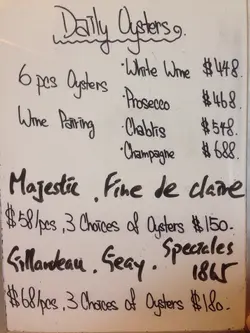 Daily Oysters
6 pcs Oysters
Wine Pairing
· White Wine $448.
· Prosecco $468.
· Chablis $548.
· Champagne $688.
Majestic . Fine de claire
$58/pcs, 3 Choices of Oysters $150.
Gillardeau . Geay . Speciales 1865
$68/pcs, 3 Choices of Oysters $180.